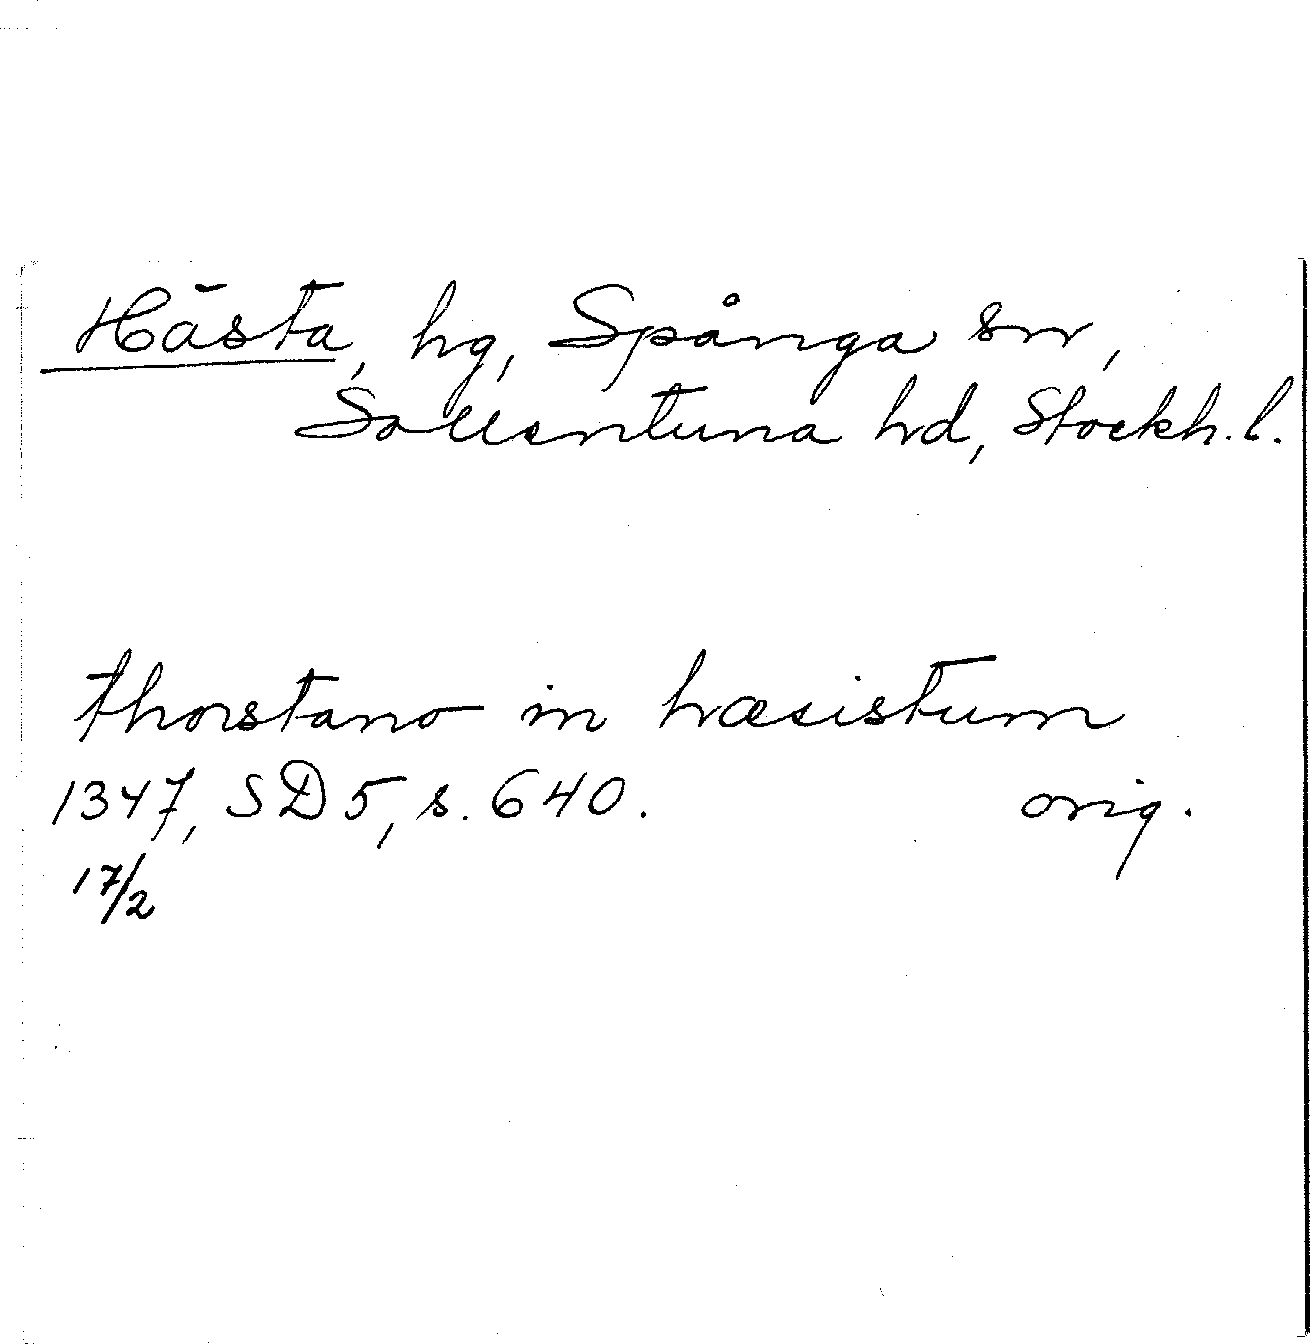 Hästa, hg, Spånga sn,
Sollentuna hd, Stockh. l.
thorstano in hæsistum
1347, SD 5, s. 640. orig.
17/2